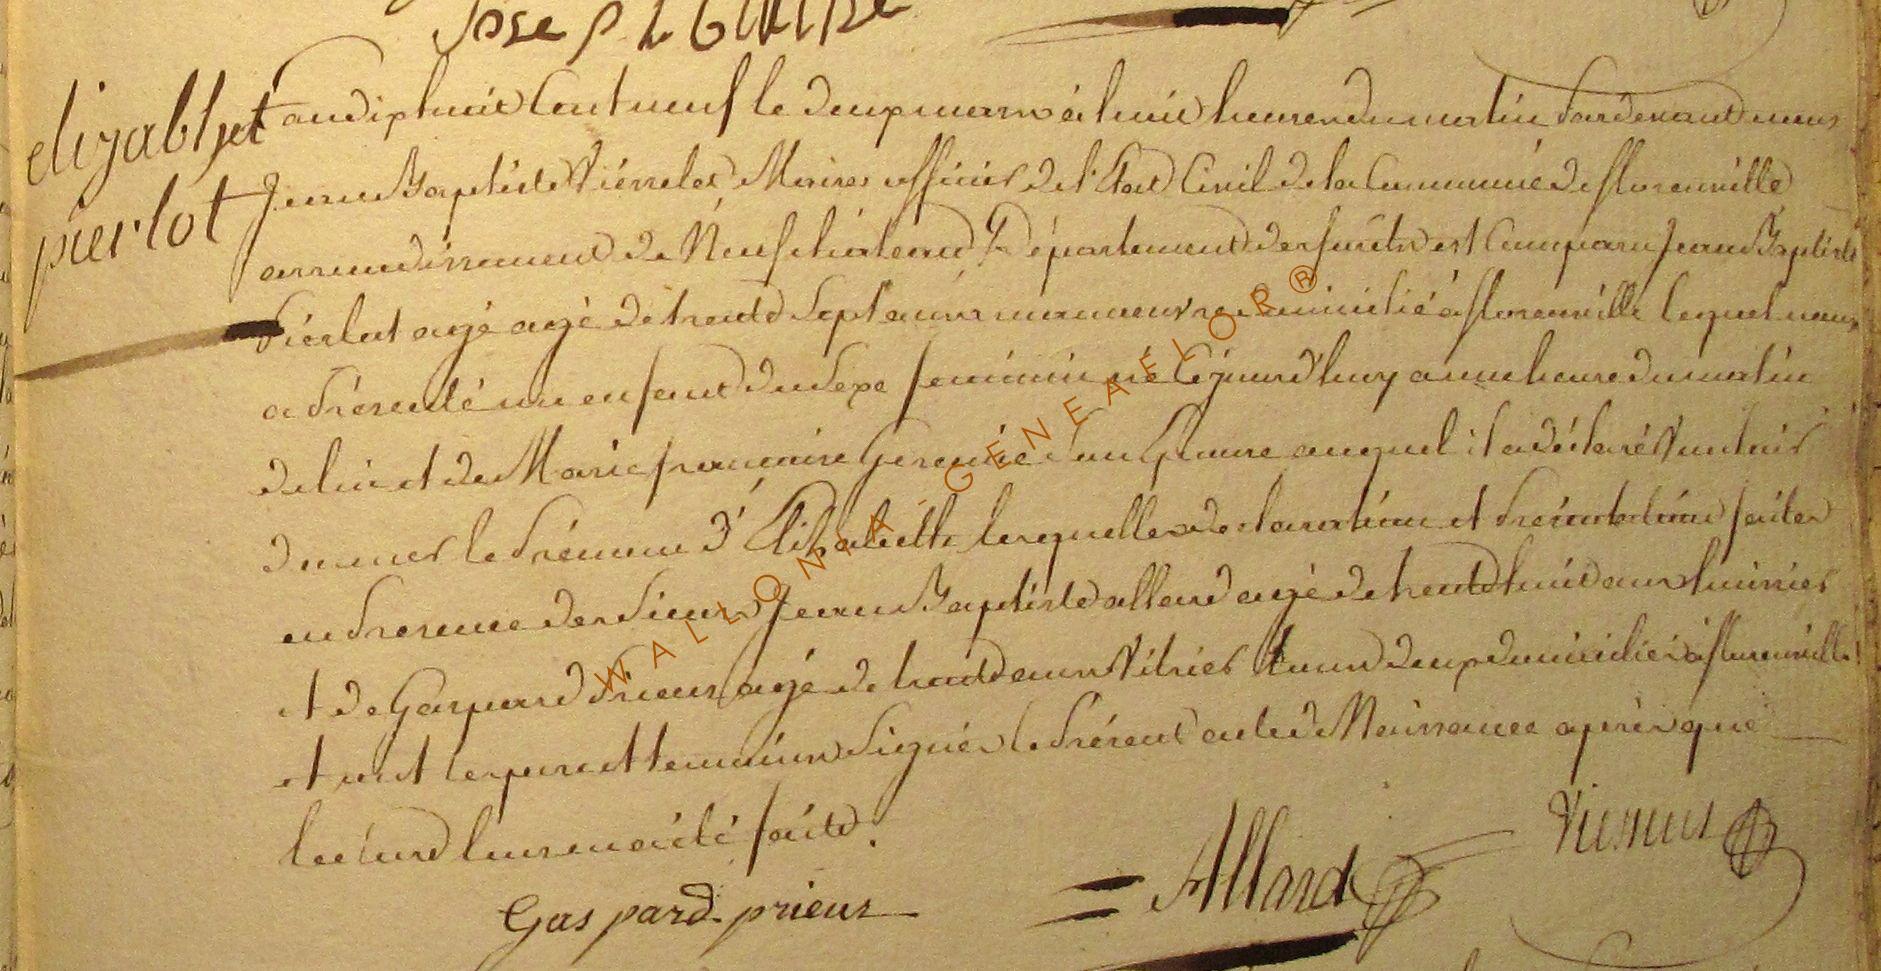 Joseph
elizabhet
pierlot
an dix huit Cent neuf le deux mars à huit heures du matin Pardevant nous
Jean Baptiste Maire officier de l'Etat Civil de la Commune de florenville
arrondissement de Neufchateau Département des forêts est Comparu Jean Baptiste
Pierlot agé agé de trente Sept ans manoeuvre domicilié à florenville lequel nous
a Présenté un enfant du Sexe feminin né Cejourd'huy a une heure du matin
de lui et de Marie françoise Son Epouse auquel il a déclaré Vouloir
donner le Prénom d'Elisabeth lesquelles declaration et Présentation faites
en Presence des Sieurs Jean Baptiste allard agé de trente huit ans huissier
et de Gaspard Prieur agé de trente ans Vitrier tous deux domiciliés à florenville
et ont les pere et temoins Signés le Présent acte de Naissance après que
lecture leur en a été faite.
Gaspard prieur
Allard
WALLONIA - GÉNÉALOR ®